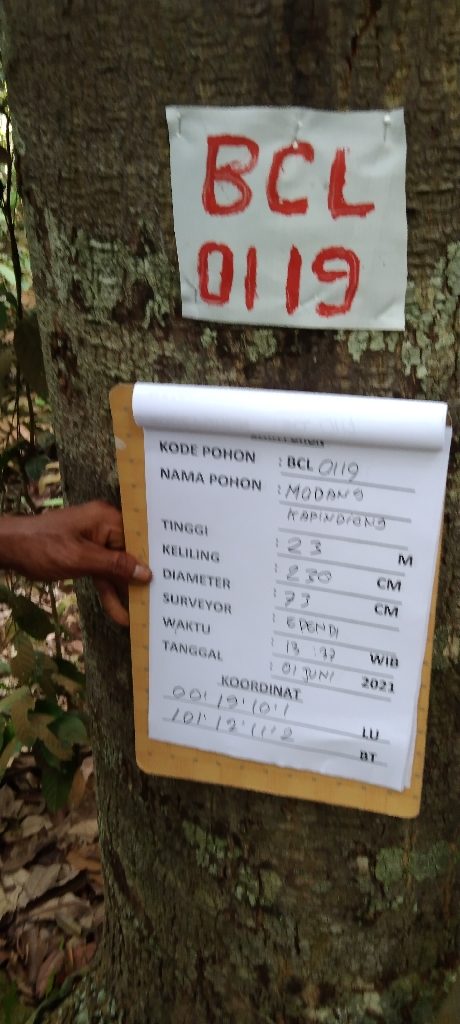 BCL
0119
KODE POHON : BCL 0119
NAMA POHON : MODANG
KAPINDIONG
TINGGI : 23 M
KELILING : 230 CM
DIAMETER : 73 CM
SURVEYOR : EPENDI
WAKTU : 13 : WIB
TANGGAL : 01 JUNI 2021
KOORDINAT
00' 19' 10' 1 LU
101' 12' 11' 2 BT